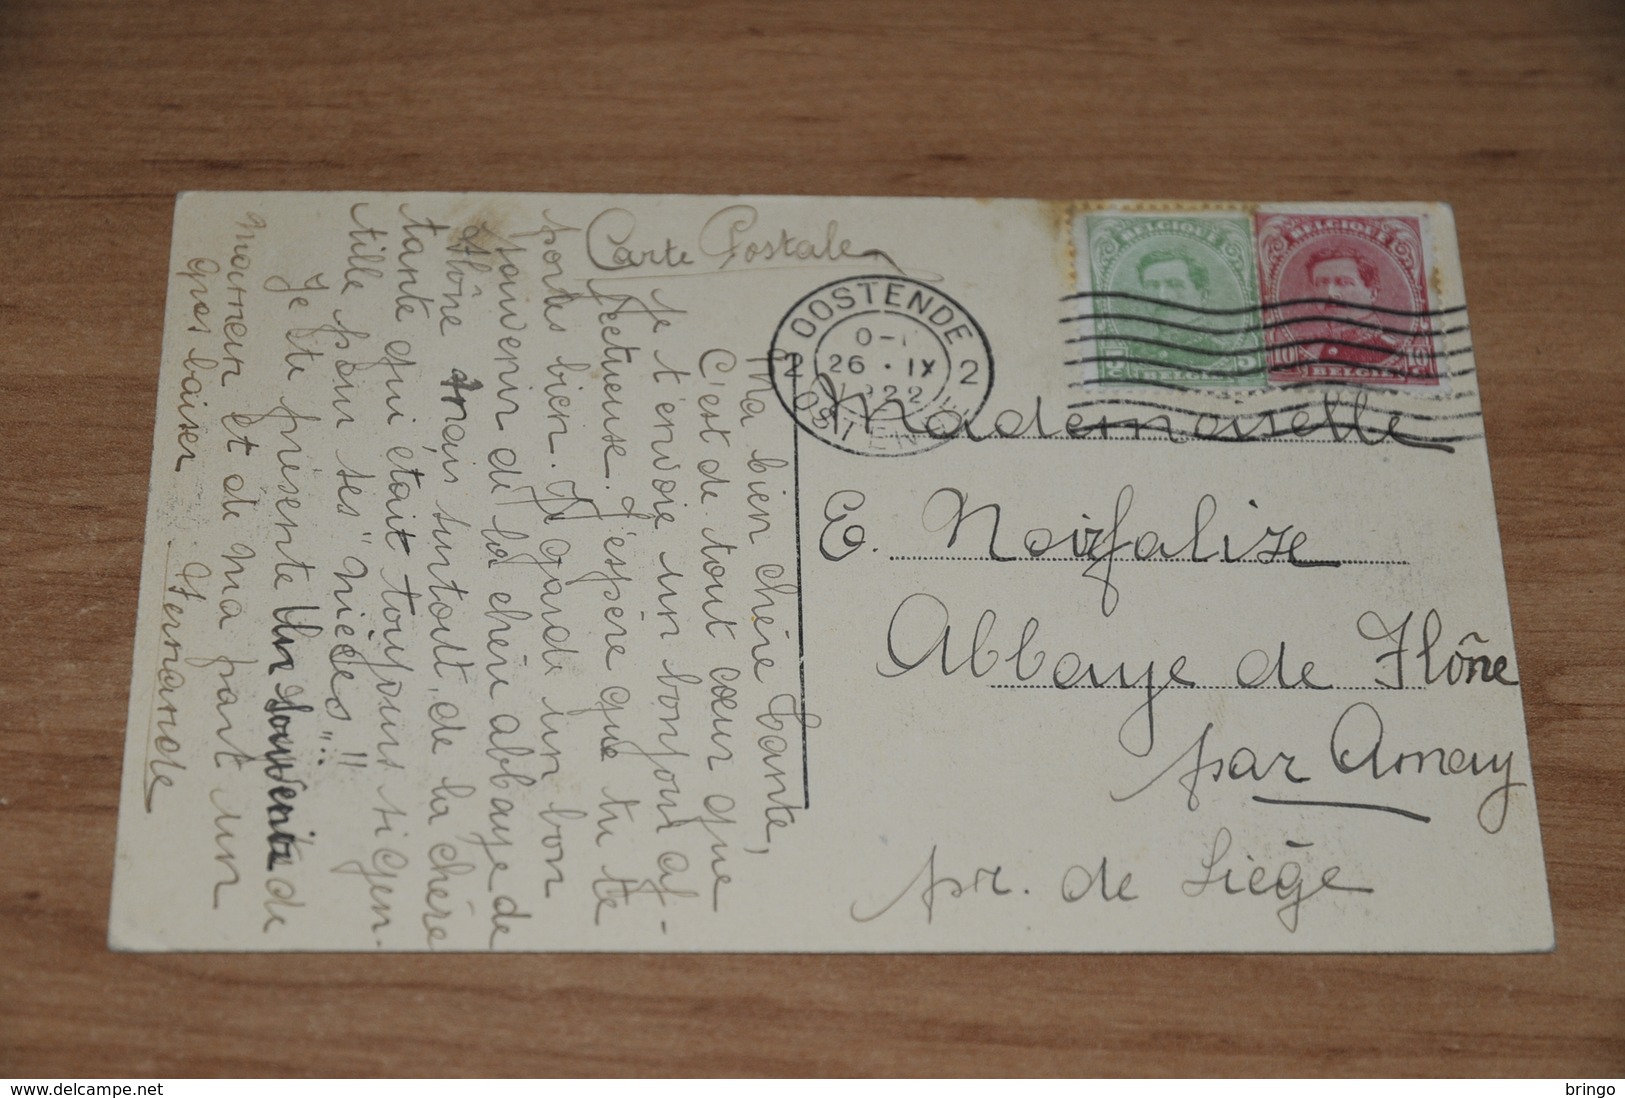 Carte Postale
Ma bien chère tante,
C'est de tout cœur que
je t'envoie un bonjour af-
fectueuse. J'espère que tu te
portes bien. Je garde un bon
souvenir de la chère abbaye de
Flône mais surtout, de la chère
tante qui était toujours si gen-
tille pour ses "nièces"!!
Je te présente un souvenir de
maman et de ma part un
gros baiser Fernande
BELGIQUE
5 5
BELGIE
BELGIQUE
10 10
BELGIE
OOSTENDE
2 2
26 . IX
1922
OSTEN
Mademoiselle
E. Noirfalise
Abbaye de Flône
par Amay
pr. de Liège
https://www.delcampe.net
bringo